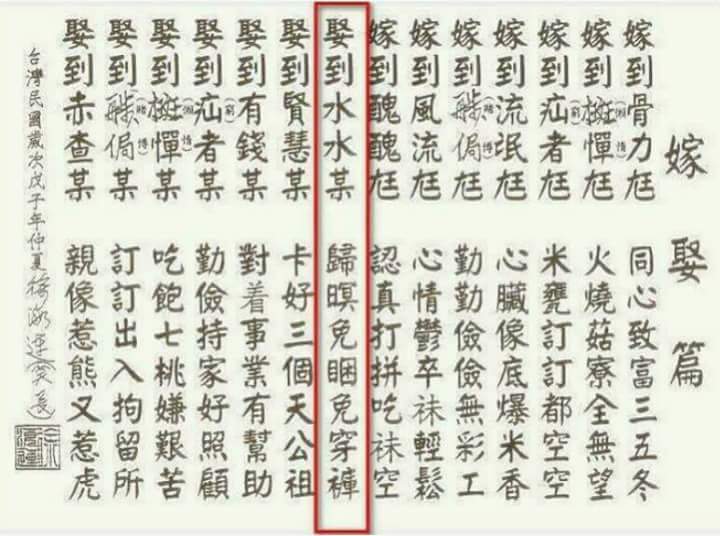 嫁娶篇
嫁到骨力尪 同心致富三五冬
嫁到憚(懶惰)尪 火燒菇寮全無望
嫁到疝者(窮)尪 米甕訂訂都空空
嫁到流氓尪 心臟像底爆米香
嫁到侷(賭博)尪 勤勤儉儉無彩工
嫁到風流尪 心情鬱卒袜輕鬆
嫁到醜醜尪 認真打拼吃袜空
娶到水水某 歸暝免睏免穿褲
娶到賢慧某 卡好三個天公祖
娶到有錢某 對着事業有幫助
娶到疝者(窮)某 勤儉持家好照顧
娶到憚(懶惰)某 吃飽七桃嫌艱苦
娶到侷(賭博)某 訂訂出入拘留所
娶到赤查某 親像惹熊又惹虎
台灣民國歲次戊子年仲夏